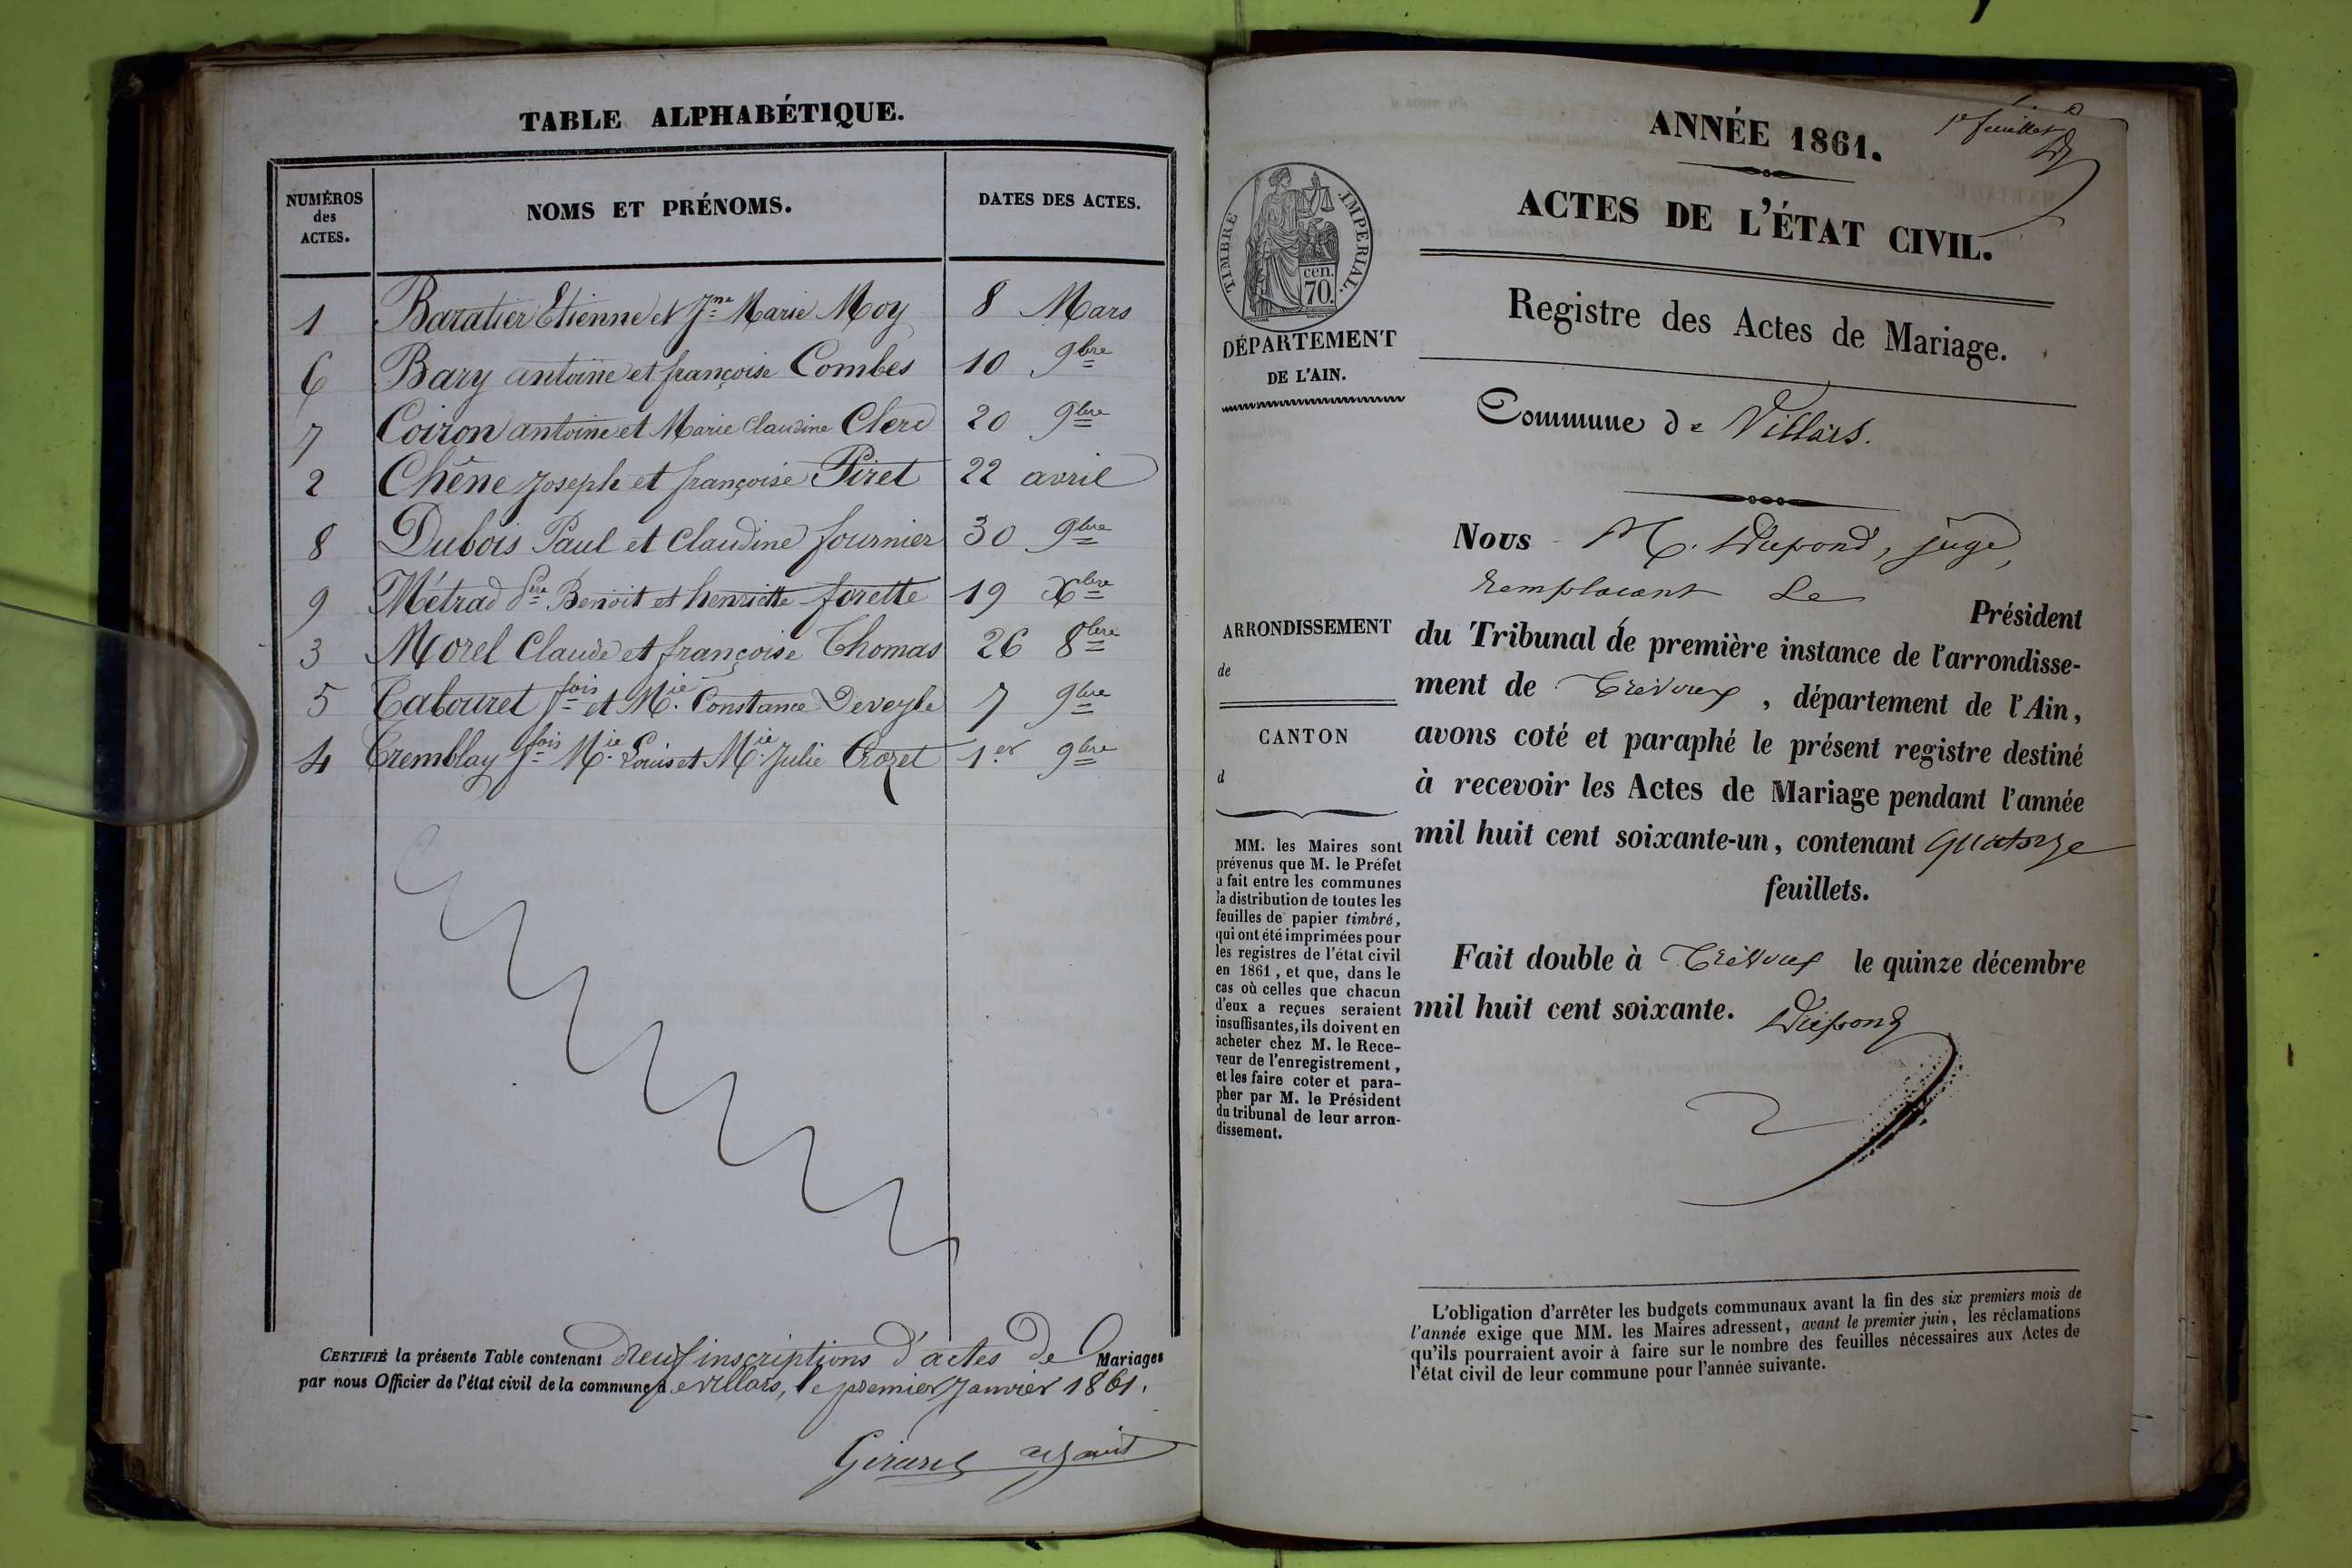 TABLE ALPHABÉTIQUE.
NUMÉROS des ACTES. NOMS ET PRÉNOMS. DATES DES ACTES.
1 Baratier Etienne et Jne Marie Moy 8 Mars
6 Bary antoine et françoise Combes 10 9bre
7 Coiron antoine et Marie Claudine Clerc 20 9bre
2 Chêne Joseph et françoise Piret 22 avril
8 Dubois Paul et Claudine fournier 30 9bre
9 Métrad Benoit et henriette forette 19 Xbre
3 Morel Claude et françoise Thomas 26 8bre
5 Tabouret fois et Mie Constance Deveyle 7 9bre
4 Tremblay fois Mie Louis et Mie Julie Crozet 1er 9bre
CERTIFIÉ la présente Table contenant neuf inscriptions d'actes de Mariages
par nous Officier de l'état civil de la commune de villars, le premier Janvier 1861.
Girard adjoint
1er feuillet
ANNÉE 1861.
ACTES DE L'ÉTAT CIVIL.
TIMBRE IMPERIAL.
cen.
70.
DÉPARTEMENT
DE L'AIN.
Registre des Actes de Mariage.
Commune de Villars.
Nous M. Dupond, juge,
remplacant Le Président
du Tribunal de première instance de l'arrondisse-
ment de Trévoux, département de l'Ain,
avons coté et paraphé le présent registre destiné
à recevoir les Actes de Mariage pendant l'année
mil huit cent soixante-un, contenant quatorze
feuillets.
Fait double à Trévoux le quinze décembre
mil huit cent soixante. Dupond
ARRONDISSEMENT
de
CANTON
d
MM. les Maires sont
prévenus que M. le Préfet
a fait entre les communes
la distribution de toutes les
feuilles de papier timbré,
qui ont été imprimées pour
les registres de l'état civil
en 1861, et que, dans le
cas où celles que chacun
d'eux a reçues seraient
insuffisantes, ils doivent en
acheter chez M. le Rece-
veur de l'enregistrement,
et les faire coter et para-
pher par M. le Président
du tribunal de leur arron-
dissement.
L'obligation d'arrêter les budgets communaux avant la fin des six premiers mois de
l'année exige que MM. les Maires adressent, avant le premier juin, les réclamations
qu'ils pourraient avoir à faire sur le nombre des feuilles nécessaires aux Actes de
l'état civil de leur commune pour l'année suivante.